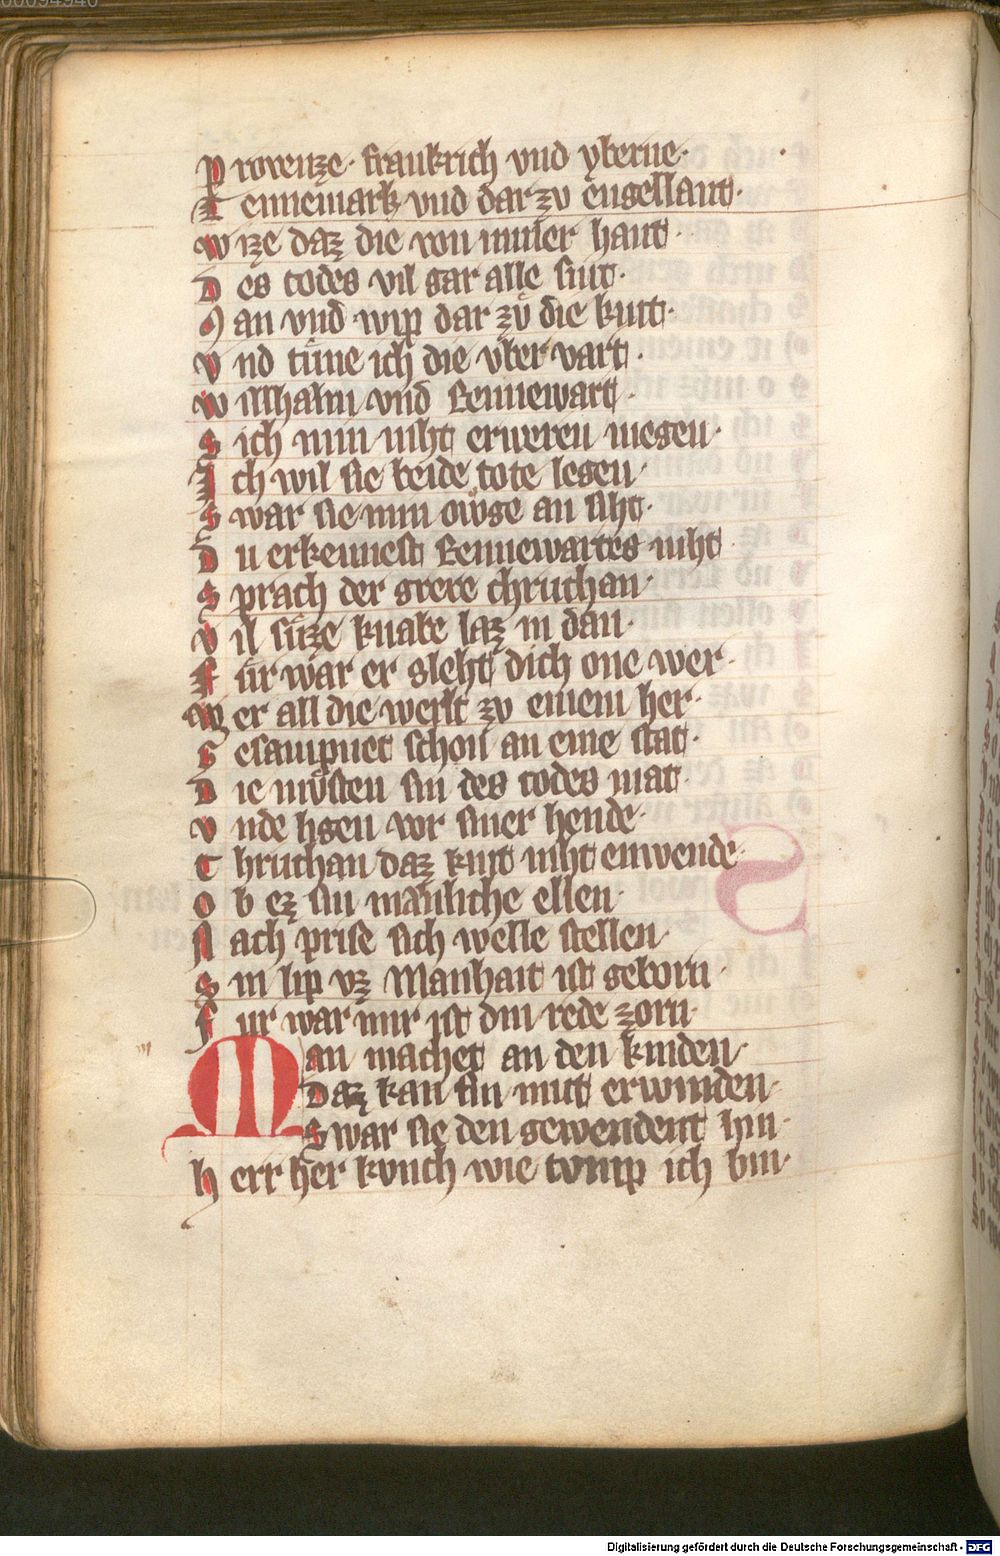 00094940
P rovenze · frankrich vnd yberne ·
T ennemark vnd dar zv engellant ·
w ize daz die von miner hant ·
D es todes vil gar alle sint ·
M an vnd wip dar zuͦ die kint ·
v nd tuͤne ich die vber vart ·
w illhalm vnd Rennewart ·
s ich min niht erweren megen ·
I ch wil sie beide tote legen ·
s war sie min owge an siht ·
D u erkennest Rennewartes niht
s prach der grere thruchan ·
v il suͤze knabe laz in dan ·
F ür war er sleht dich one wer ·
w er all die werlt zv einem her ·
G esampnet schon an eine stat ·
D ie muͤsten sin des todes mat
v nde ligen vor siner hende ·
T hruchan daz kint niht enwende ·
o b ez sin manliche ellen ·
N ach prise sich welle stellen ·
s in lip vz Manhait ist geborn ·
F ur war mir ist din rede zorn ·
m
Man machet an den kinden ·
Daz kan sin mut erwinden ·
Swar sie den gewendent hin ·
h err her kvnch wie tvmp ich bin ·
Digitalisierung gefördert durch die Deutsche Forschungsgemeinschaft - DFG